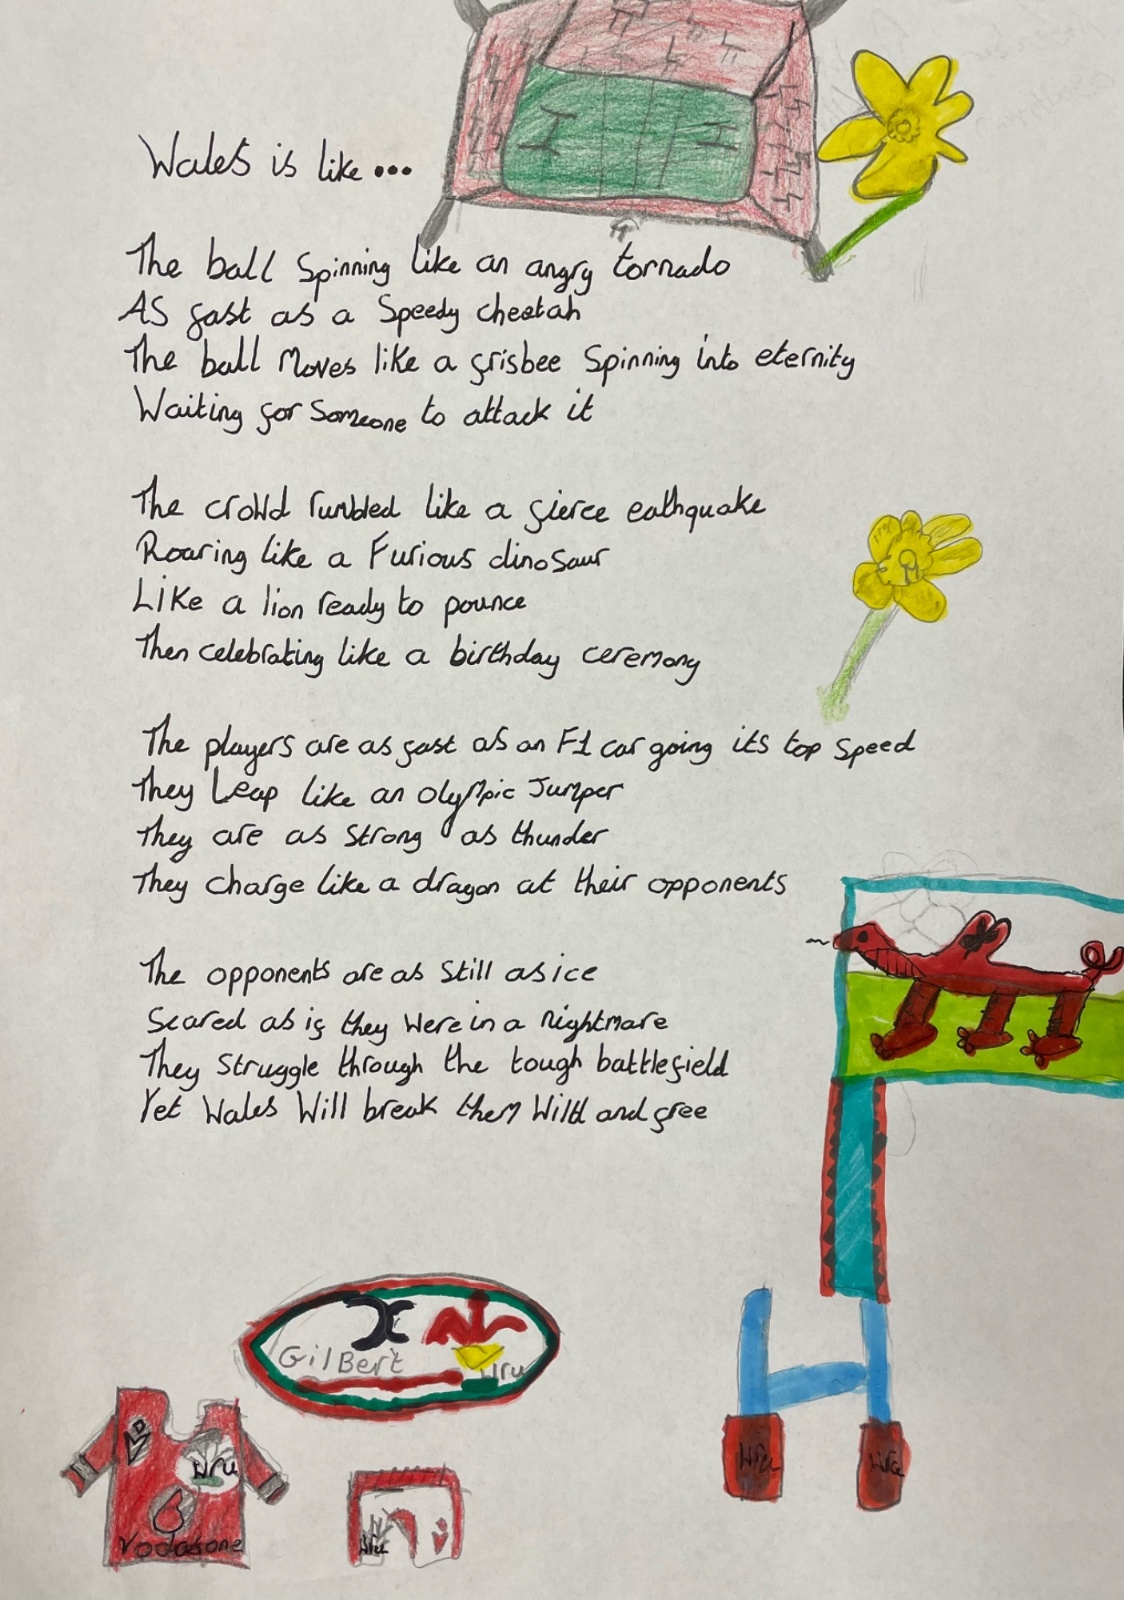 Wales is like...
The ball spinning like an angry tornado
As fast as a Speedy cheetah
The ball Moves like a frisbee Spinning into eternity
Waiting for Someone to attack it
The crowd rumbled like a fierce eathquake
Roaring like a Furious dinosaur
Like a lion ready to pounce
Then celebrating like a birthday ceremony
The players are as fast as an F1 car going its top speed
They Leap like an olympic Jumper
They are as strong as thunder
They charge like a dragon at their opponents
The opponents are as still as ice
Scared as if they were in a nightmare
They struggle through the tough battlefield
Yet Wales Will break them Wild and free
GilBert
wru
wru
Vodafone
wru
wru
wru